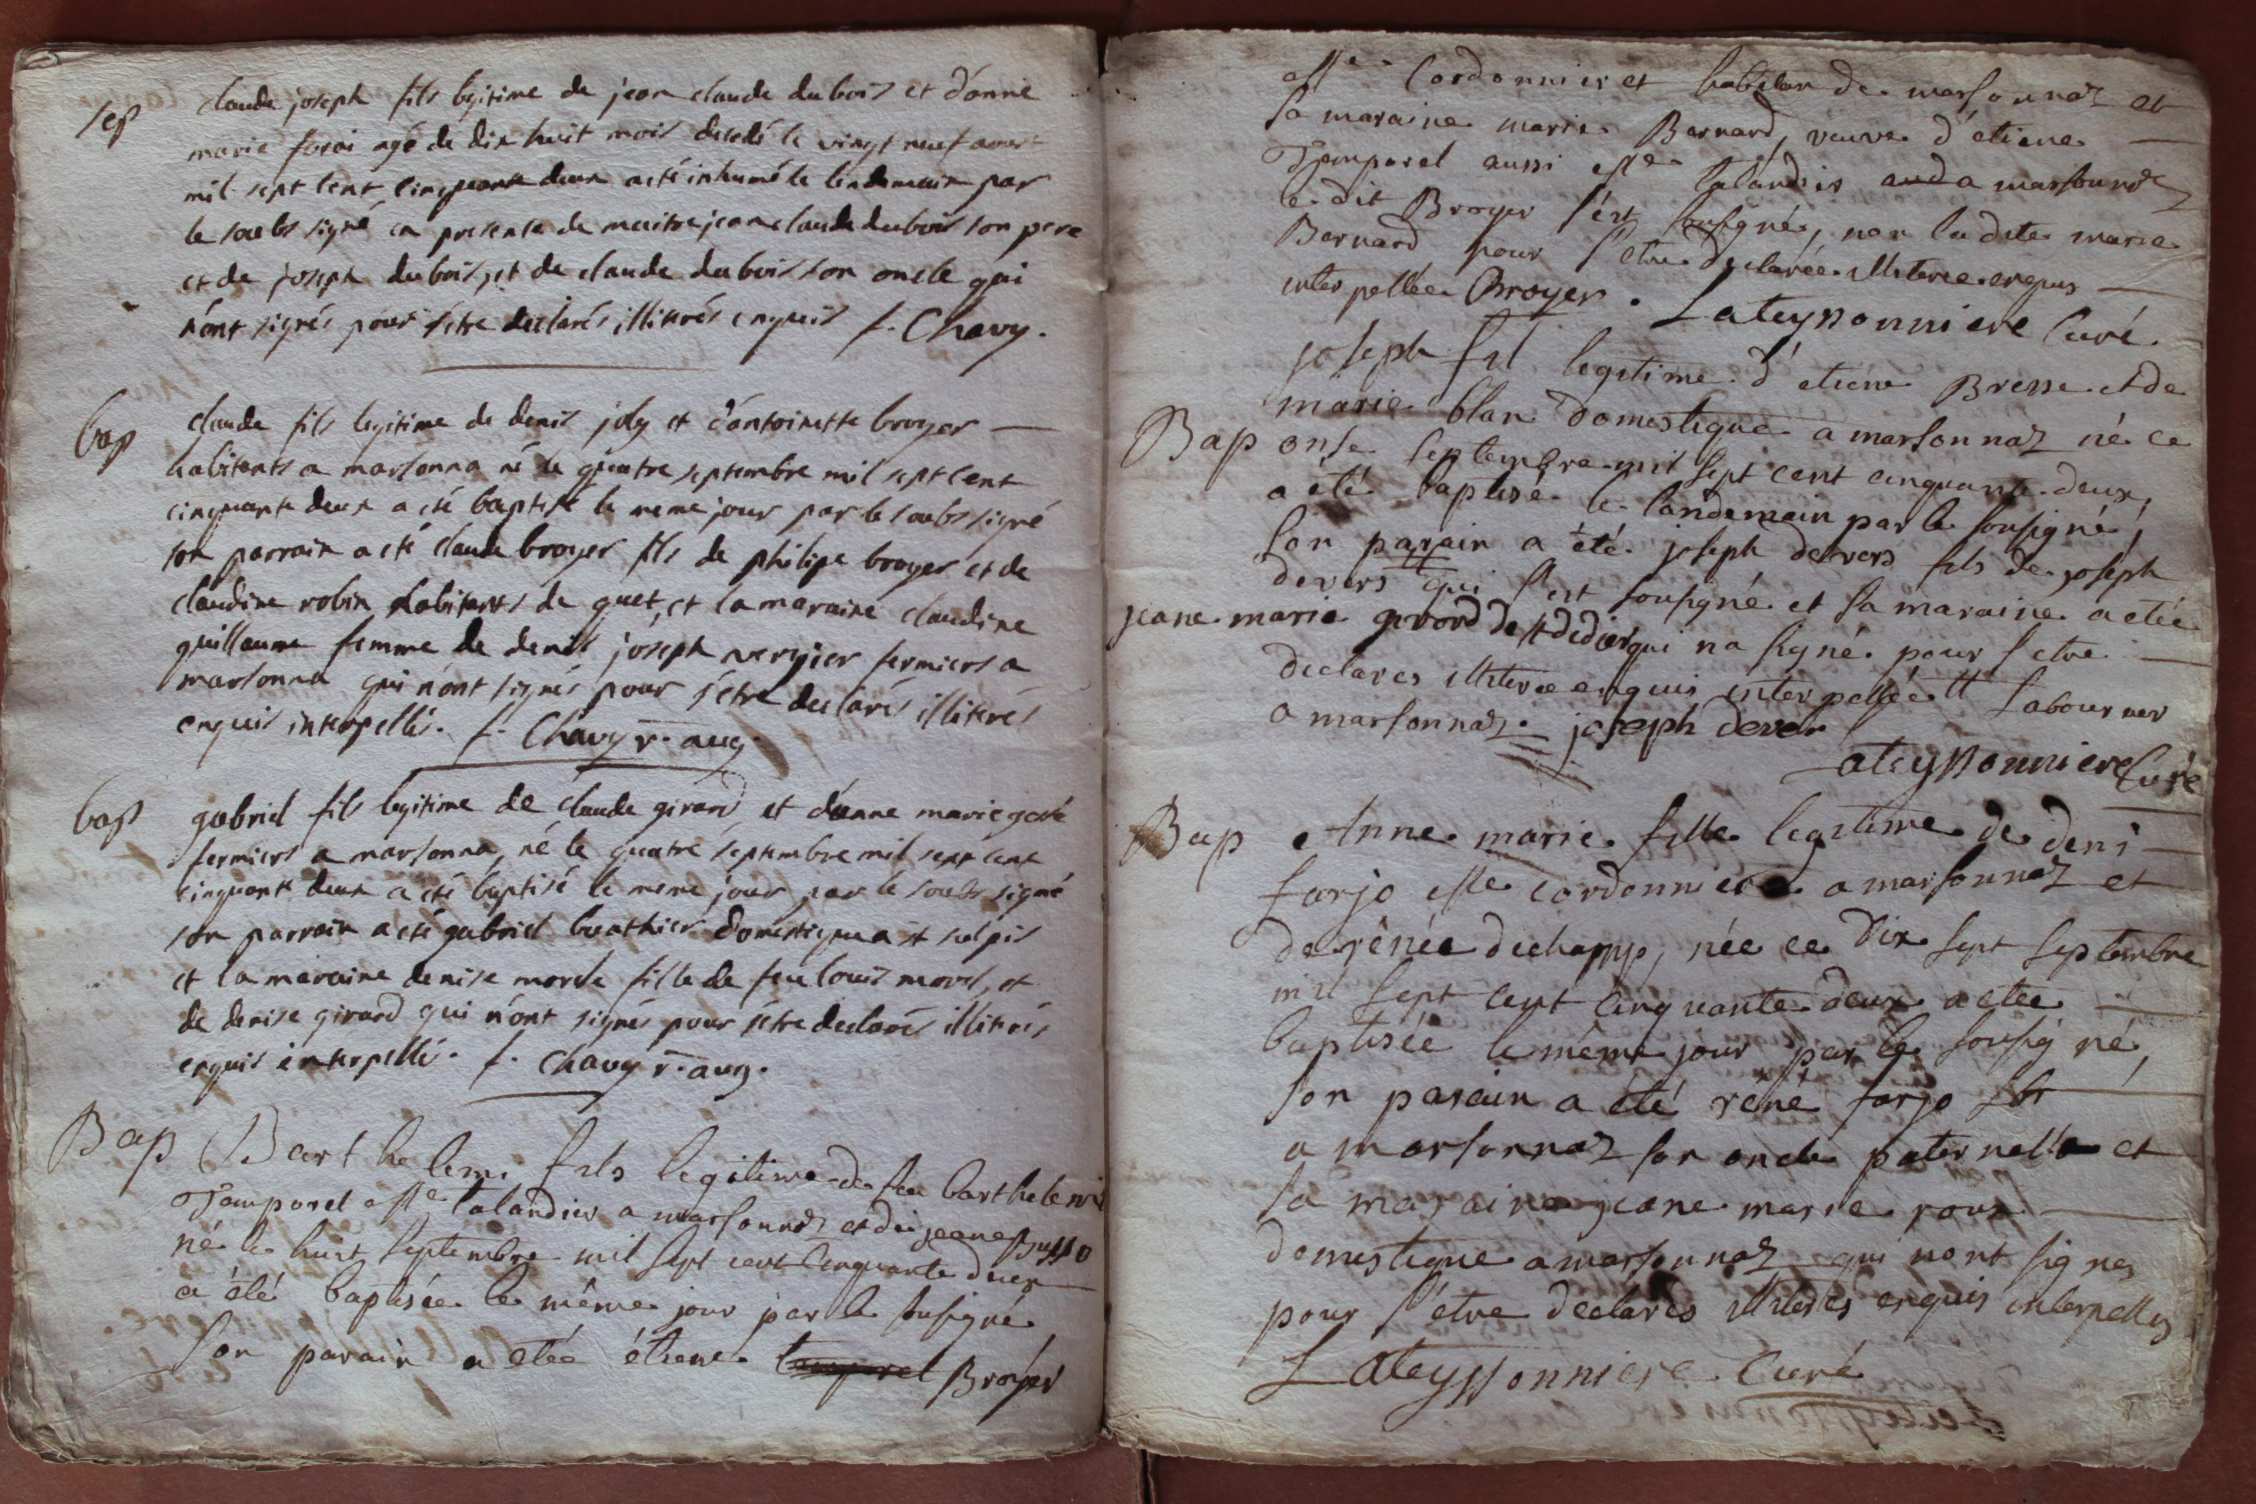 sep
claude joseph fils legitime de jean claude dubois et d'anne
marie agé de dix huit mois decedé le vingt neuf aoust
mil sept cent cinquante deux a été inhumé le lendemain par
le soubs signé en presence de maitre jean claude dubois son pere
et de joseph dubois, et de claude dubois son oncle qui
n'ont signés pour s'etre declarés illitirés enquis f. Chavy.
bap
claude fils legitime de denis joly et d'antoinette broyer
habitants a marsonna né le quatre septembre mil sept cent
cinquante deux a eté baptisé le meme jour par le soubs signé
son parrain a eté claude broyer fils de philipe broyer et de
claudine robin habitants de guet, et la maraine claudine
guillaume femme de denis joseph vergier fermiers a
marsonna qui n'ont signés pour s'etre declarés illitirés
enquis interpellés. f. Chavy v. aug.
bap
gabriel fils legitime de claude girard et d'anne marie
fermiers a marsonna, né le quatre septembre mil sept cent
cinquante deux a eté baptisé le meme jour par le soubs signé
son parrain a eté gabriel buathier domestique a st sulpis
et la maraine denise morel fille de feu louis morel, et
de denise girard qui n'ont signés pour s'etre declarés illitirés
enquis interpellé. f. Chavy v. aug.
Bap
Barthelemi fils legitime de feu barthelemi
Temporel talandier a marsonnaz et de jeane Busso
né le huit septembre mil sept cent cinquante deux
a été baptisée le même jour par le sousigné
son parain a etée étiene temporel Broyer
cordonnier et habitan de marsonnaz et
sa maraine marie Bernard, veuve d'etiene
Temporel aussi talandier a marsonnaz
le dit Broyer s'est sousigné, non la dite marie
Bernard pour s'etre declarée illiteree enquis
interpellée Broyer. Lateyssonniere Curé.
Bap
joseph fil legitime d'etiene Bresse et de
marie blan domestique a marsonnaz né ce
onse septembre mil sept cent cinquante deux,
a été baptisé le landemain par le sousigné,
son parain a été joseph devers fils de joseph
devers # qui s'est sousigné et sa maraine a etée
jeane marie gerord de st didier qui na signé pour s'etre
declares illiteree enquis interpellée # labourner
a marsonnaz. joseph dever
Lateyssonniere Curé
Bap
Anne marie fille legitime de deni
farjo cordonnier a marsonnaz et
de rênée dechapp, née ce dix sept septembre
mil sept cent cinquante deux a etée
baptisée le même jour par le sousigné,
son parain a été rêné farjo
a marsonnaz son oncle paternelle et
sa maraine jeane marie roux
domestique a marsonnaz qui nont signes
pour s'être declares illiterés enquis interpelles
Lateyssonniere Curé